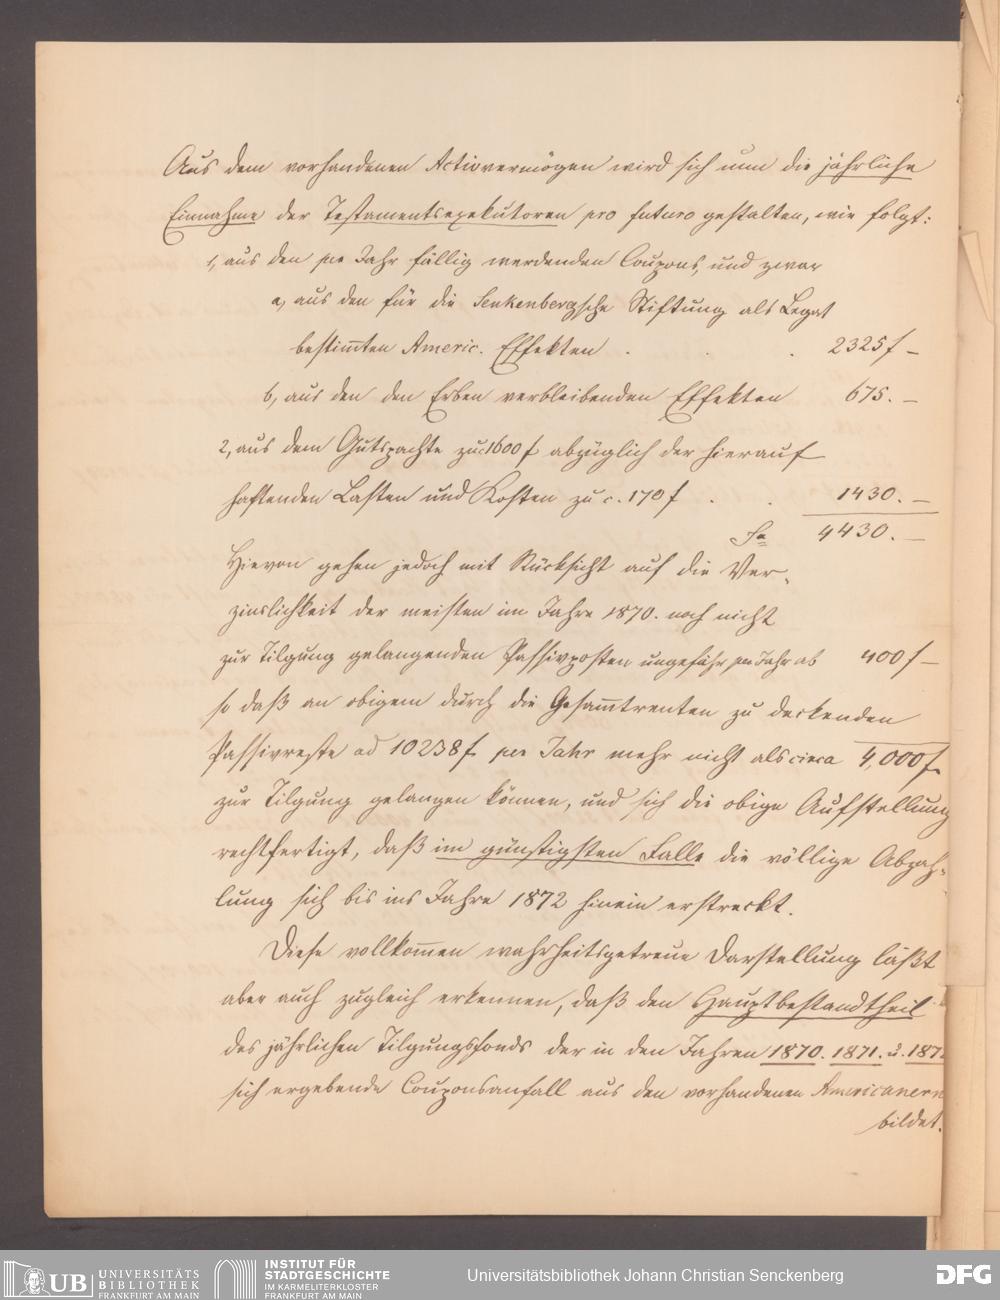 Aus dem vorhandenen Activvermögen wird sich nun die jährliche
Einnahme der Testamentsexekutoren pro futuro gestalten, wie folgt:
1, aus den per Jahr fällig werdenden Coupons, und zwar
a, aus den für die Senkenbergsche Stiftung als Legat
bestim̄ten Americ. Effekten . . . 2325 f –
b, aus den den Erben verbleibenden Effekten 675. –
2, aus dem Gutspachte zu 1600 f abzüglich der hierauf
haftenden Lasten und Kosten zu c. 170 f . . 1430. –
Sa 4430. –
Hievon gehen jedoch mit Rücksicht auf die Ver-
zinslichkeit der meisten im Jahre 1870. noch nicht
zur Tilgung gelangenden Passivposten ungefähr per Jahr ab 400 f –
so daß an obigem durch die Gesam̄trenten zu deckenden
Passivreste ad 10238 f per Jahr mehr nicht als circa 4,000 f.
zur Tilgung gelangen können, und sich die obige Aufstellung
rechtfertigt, daß im günstigsten Falle die völlige Abzah-
lung sich bis ins Jahre 1872 hinein erstreckt.
Diese vollkom̄en wahrheitsgetreue Darstellung läßt
aber auch zugleich erkennen, daß den Hauptbestandtheil
des jährlichen Tilgungsfonds der in den Jahren 1870. 1871. u. 1872
sich ergebende Couponsanfall aus den vorhandenen Americanern
bildet.
UB UNIVERSITÄTS
BIBLIOTHEK
FRANKFURT AM MAIN
INSTITUT FÜR
STADTGESCHICHTE
IM KARMELITERKLOSTER
FRANKFURT AM MAIN
Universitätsbibliothek Johann Christian Senckenberg
DFG